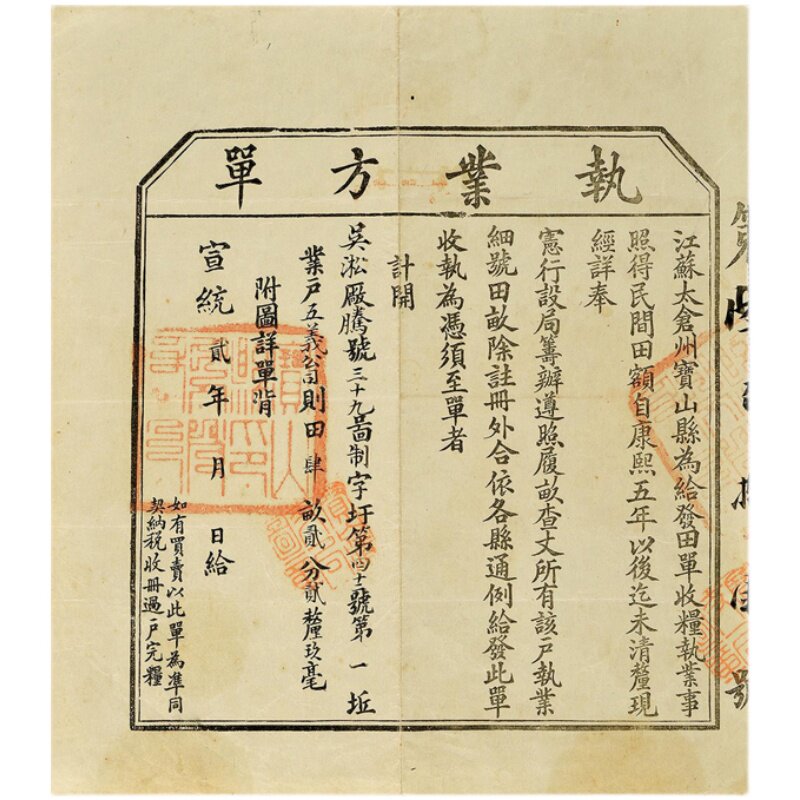 執業方單
江蘇太倉州寶山縣為給發田單收糧執業事
照得民間田額自康熙五年以後迄未清釐現
經詳奉
憲行設局籌辦遵照履畝查丈所有該戶執業
細號田畝除註冊外合依各縣通例給發此單
收執為憑須至單者
計開
吳淞廠騰號三十九啚制字圩第四十一號第一坵
業戶五義公司則田肆畝貳分貳釐玖毫
附圖詳單背
宣統貳年月日給
如有買賣以此單為準同
契納稅收冊過戶完糧
號